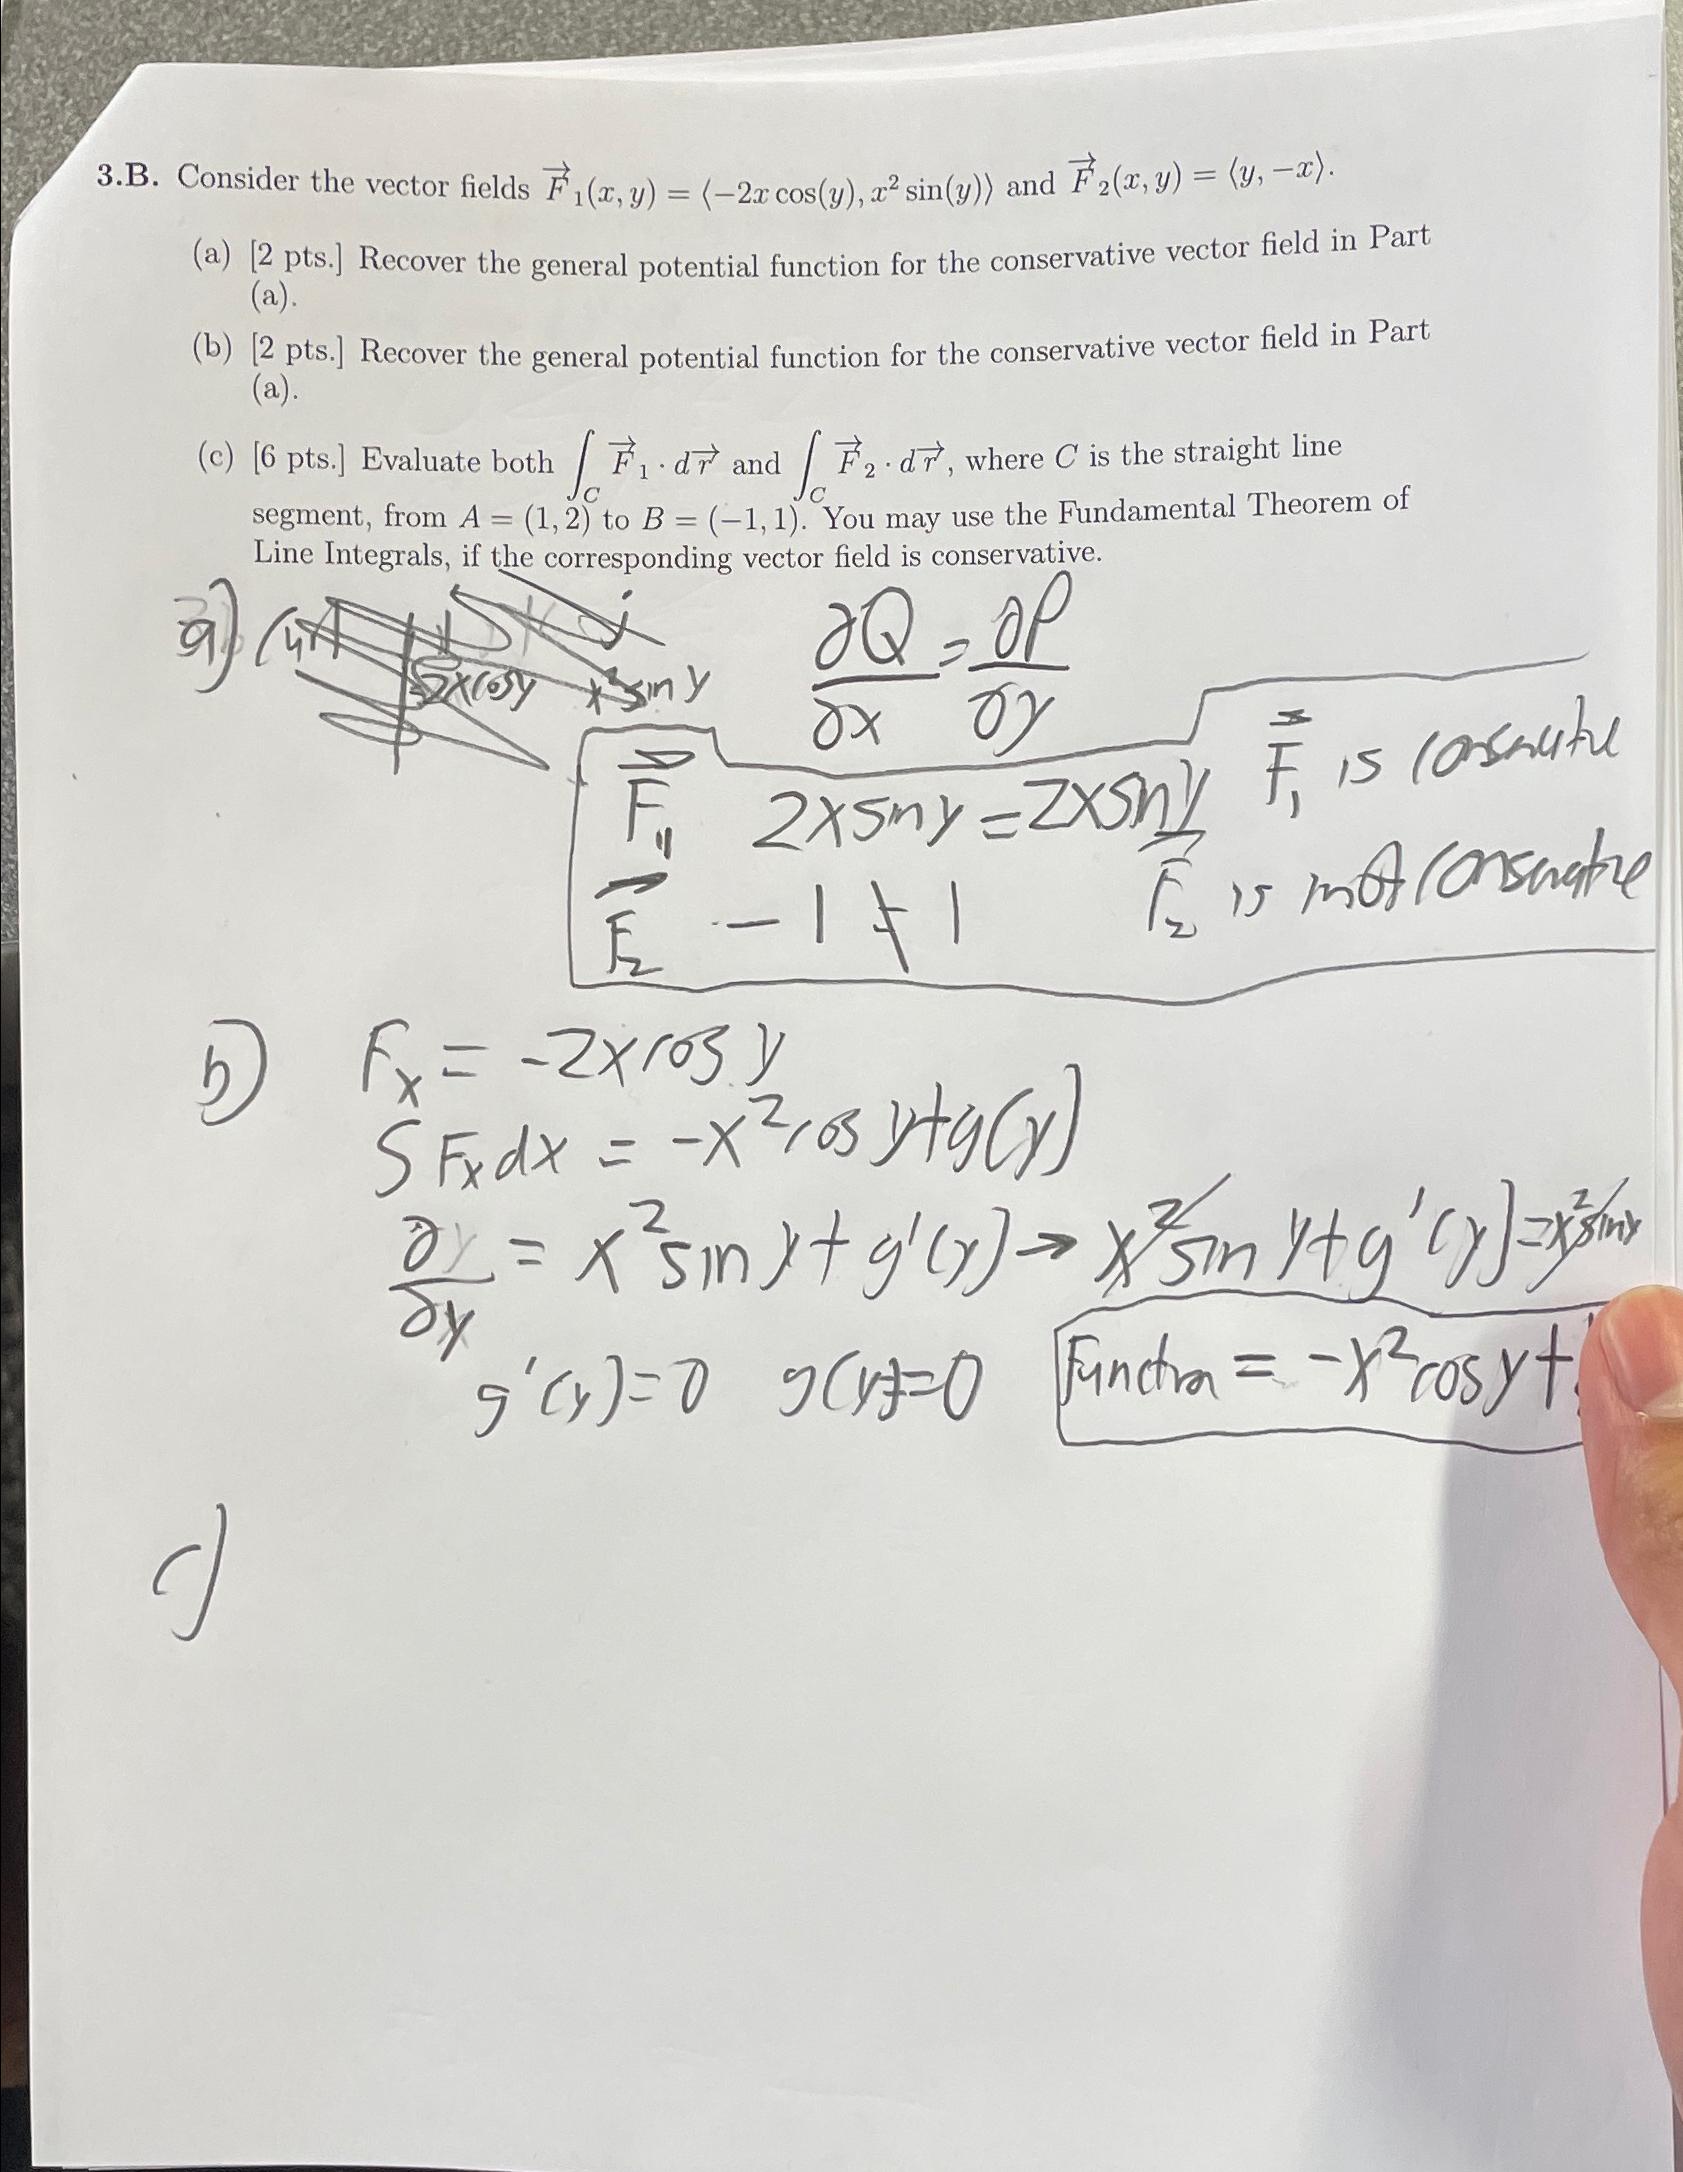 3.B. Consider the vector fields F⃗₁(x, y) = ⟨−2x cos(y), x² sin(y)⟩ and F⃗₂(x, y) = ⟨y, −x⟩.
(a) [2 pts.] Recover the general potential function for the conservative vector field in Part
(a).
(b) [2 pts.] Recover the general potential function for the conservative vector field in Part
(a).
(c) [6 pts.] Evaluate both ∫_C F⃗₁ · dr⃗ and ∫_C F⃗₂ · dr⃗, where C is the straight line
segment, from A = (1, 2) to B = (−1, 1). You may use the Fundamental Theorem of
Line Integrals, if the corresponding vector field is conservative.
a) j ∂Q/∂x = ∂P/∂y
-2xcosy x² sin y
F⃗₁ 2x sin y = 2x sin y F⃗₁ is conservative
F⃗₂ -1 ≠ 1 F⃗₂ is not conservative
b) Fx = -2x cos y
∫ Fx dx = -x² cos y + g(y)
∂y/∂y = x² sin y + g'(y) → x² sin y + g'(y) = x² sin y
g'(y) = 0 g(y) = 0 Function = -x² cos y +
c)